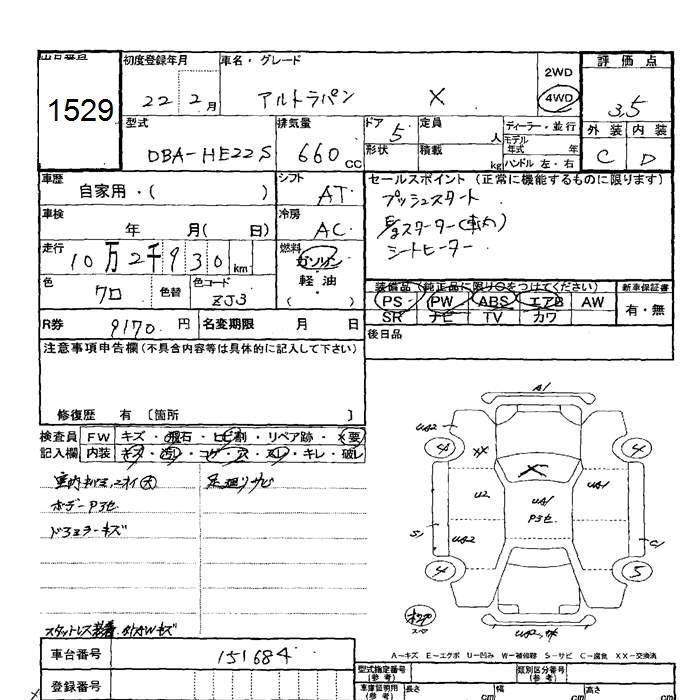 出品番号 初度登録年月 車名・グレード 評価点
1529 22 2月 アルトラパン X 2WD 4WD 3.5
型式 排気量 ドア 定員 ディーラー・並行 外装 内装
DBA-HE22S 660cc 5 人 モデル年式 年 C D
形状 積載 kg ハンドル 左・右
車歴 シフト セールスポイント (正常に機能するものに限ります)
自家用・( ) AT プッシュスタート
車検 冷房
年 月( 日) AC
走行 燃料 シートヒーター
10万2千930km ガソリン
色 色替 色コード 軽・油 装備品 (純正品に限り○をつけてください) 新車保証書
クロ ZJ3 ( ) PS PW ABS エアB AW 有・無
SR ナビ TV カワ
R券 9170円 名変期限 月 日 後日品
注意事項申告欄(不具合内容等は具体的に記入して下さい)
修復歴 有 〔箇所 〕
検査員 FW キズ・飛石・ヒビ割・リペア跡・X要
記入欄 内装 キズ・汚レ・コゲ・穴・スレ・キレ・破レ
足廻リサビ
ボデーP3セ
ドアミラーキズ
A1
UA2 4 4
XX X
U2 UA1 UA1
P3セ
S1 UA2 C1
4 5
スタットレス装着
A-キズ E-エクボ U-凹み W-補修跡 S-サビ C-腐食 XX-交換済
車台番号 151684
型式指定番号(参考) 類別区分番号(参考)
登録番号
車庫証明用(参考) 長さ cm 幅 cm 高さ cm